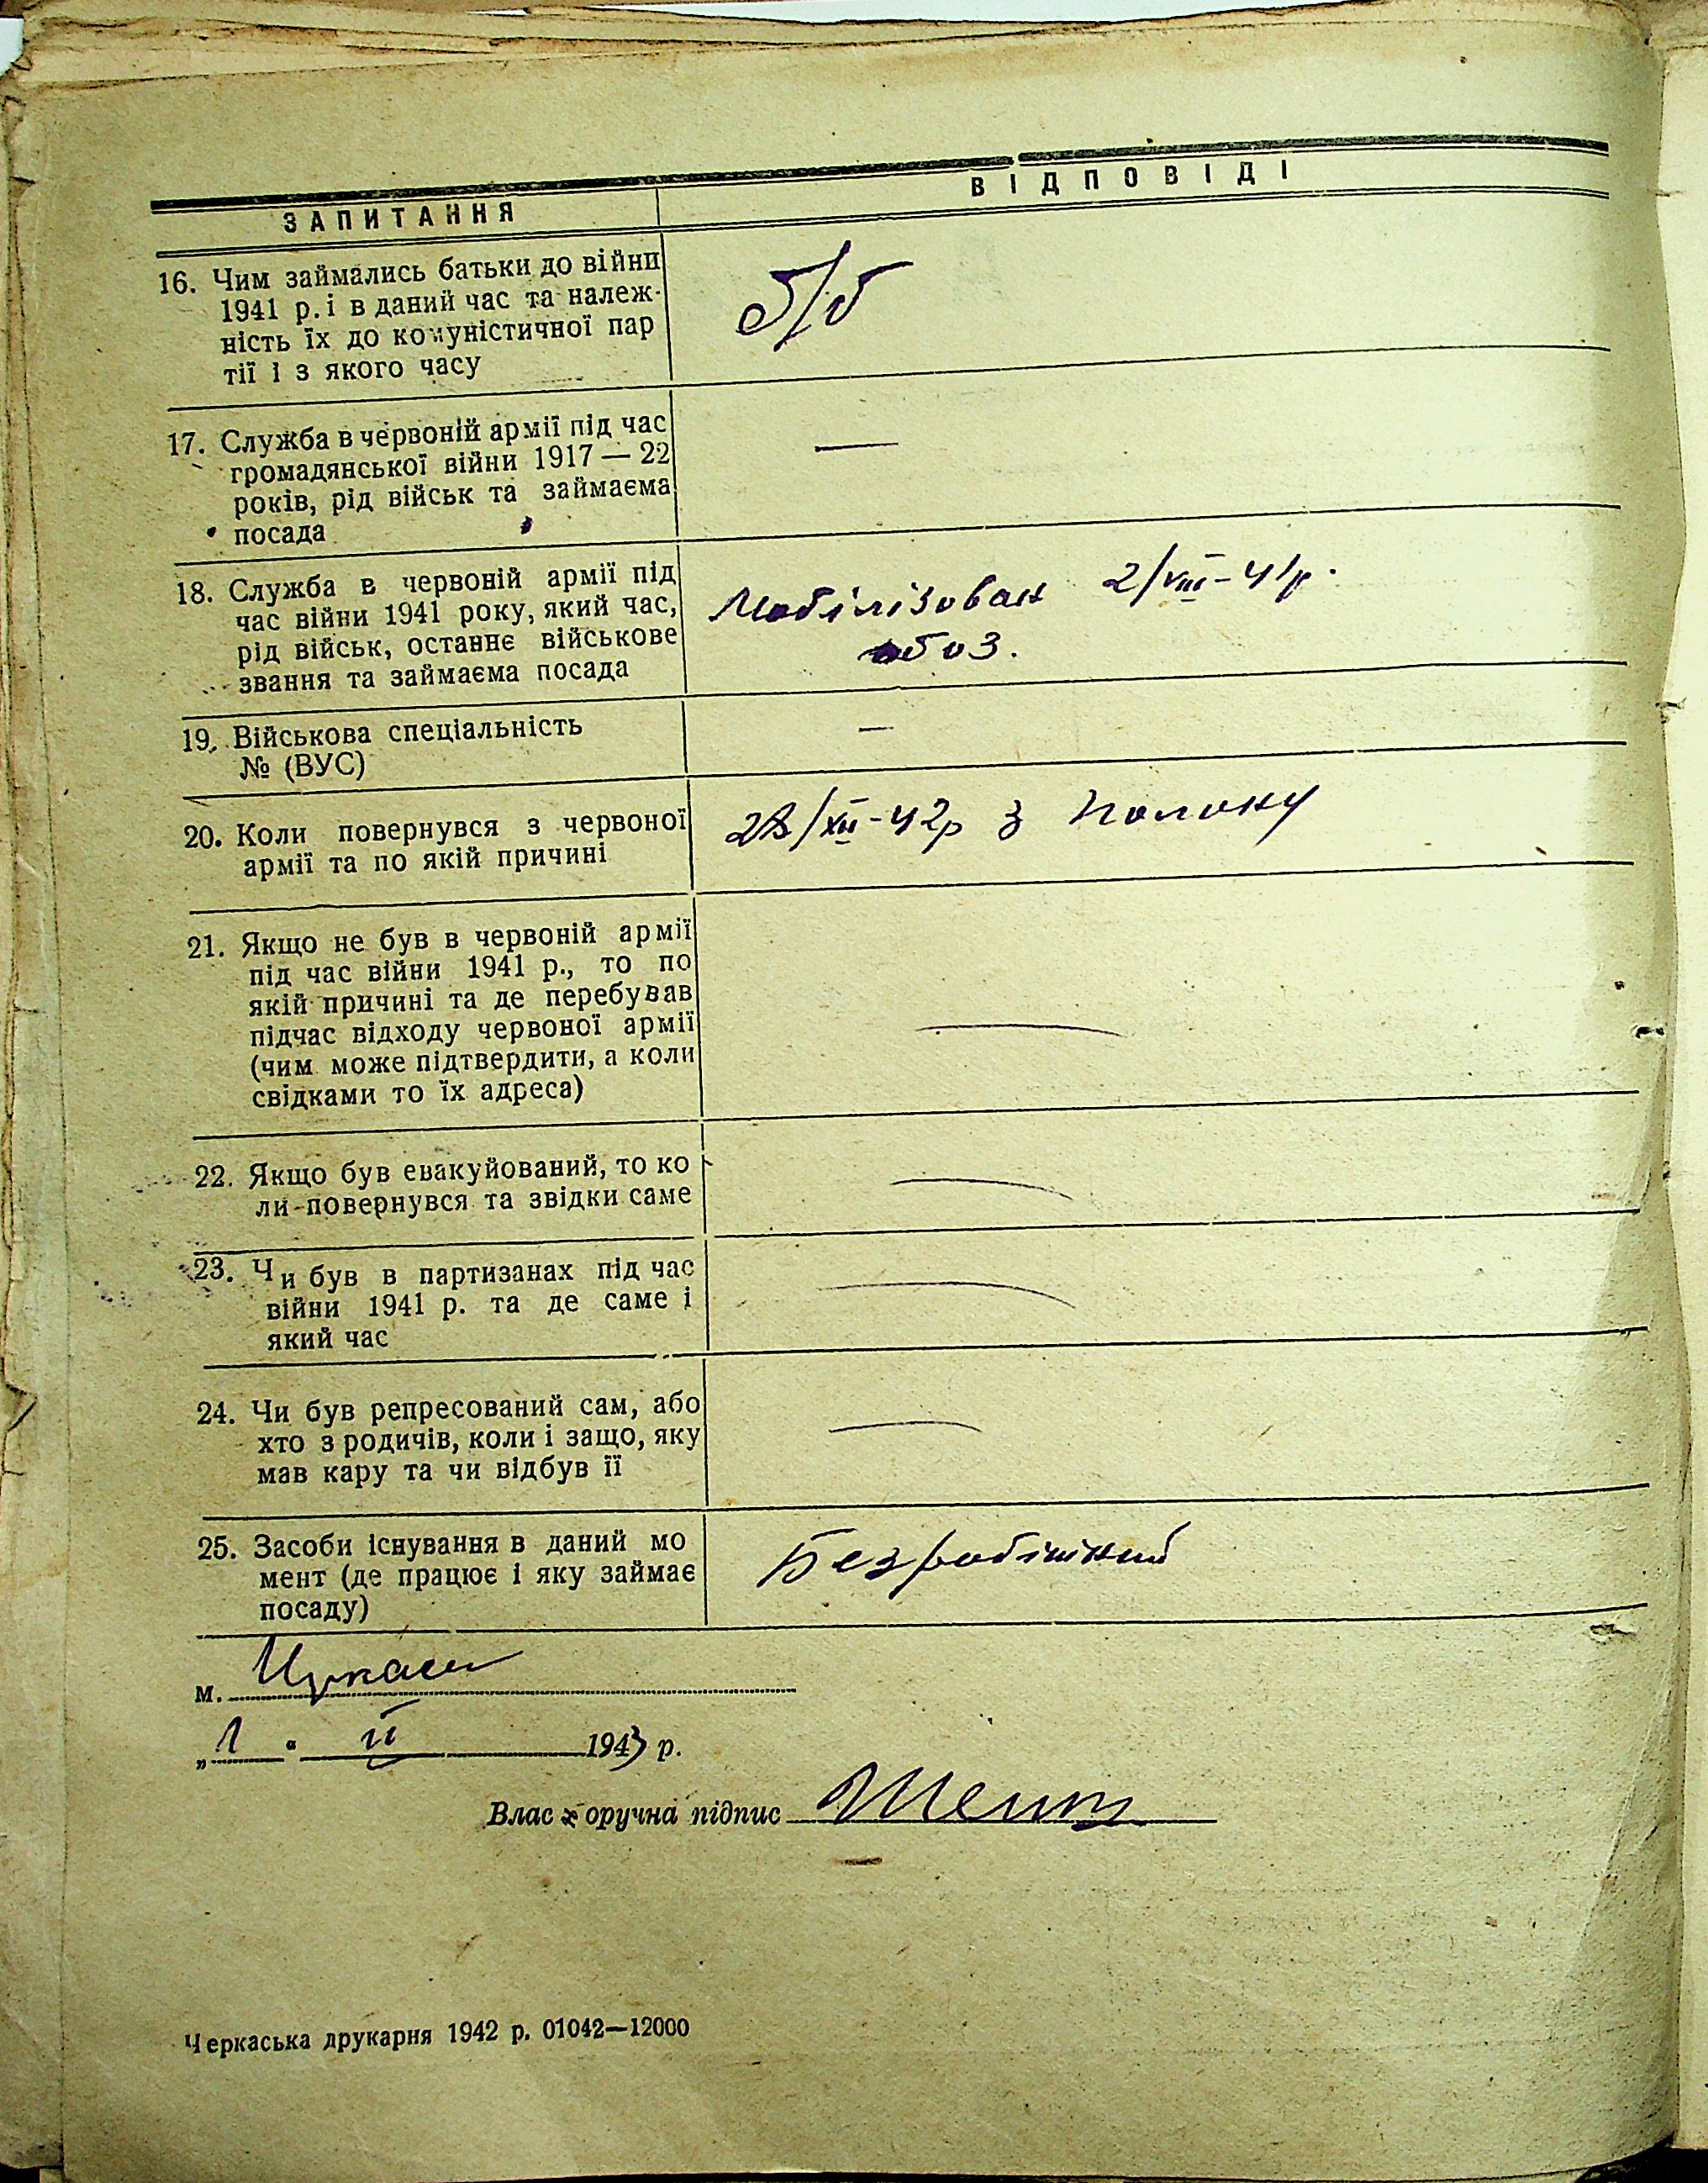 ЗАПИТАННЯ
ВІДПОВІДІ
16. Чим займались батьки до війни
1941 р. і в даний час та належ-
ність їх до комуністичної пар
тії і з якого часу
б/б
17. Служба в червоній армії під час
громадянської війни 1917 — 22
років, рід військ та займаєма
посада
—
18. Служба в червоній армії під
час війни 1941 року, який час,
рід військ, останнє військове
звання та займаєма посада
Мобілізован 2/VIII-41р.
обоз.
19. Військова спеціальність
№ (ВУС)
—
20. Коли повернувся з червоної
армії та по якій причині
28/XII-42р з полону
21. Якщо не був в червоній армії
під час війни 1941 р., то по
якій причині та де перебував
підчас відходу червоної армії
(чим може підтвердити, а коли
свідками то їх адреса)
—
22. Якщо був евакуйований, то ко
ли-повернувся та звідки саме
—
23. Чи був в партизанах під час
війни 1941 р. та де саме і
який час
—
24. Чи був репресований сам, або
хто з родичів, коли і защо, яку
мав кару та чи відбув її
—
25. Засоби існування в даний мо
мент (де працює і яку займає
посаду)
Безробітний
м. Черкаси
„1“ II 1943 р.
Власноручна підпис
Черкаська друкарня 1942 р. 01042—12000